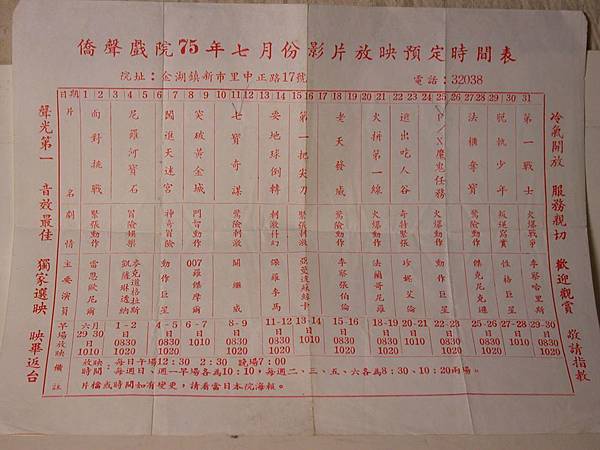 僑聲戲院75年七月份影片放映預定時間表
院址：金湖鎮新市里中正路17號 電話：32038
聲光第一 音效最佳 獨家選映 映畢返台
日期 1 2 3 4 5 6 7 8 9 10 11 12 13 14 15 16 17 18 19 20 21 22 23 24 25 26 27 28 29 30 31
片名 面對挑戰 尼羅河寶石 闖進天迷宮 突破黃金城 七寶奇謀 要地球倒轉 第一把尖刀 老天發威 火拼第一線 逃出吃人谷 P/X魔鬼任務 法櫃奪寶 執少年 第一戰士
劇情 緊張動作 冒險娛樂 神奇冒險 鬥智動作 驚險刺激 刺激科幻 緊張刺激 驚險動作 火爆動作 奇特緊張 火爆動作 驚險動作 叛逆寫實 火爆戰爭
主要演員 雷恩歐尼爾 麥克道格拉斯 凱薩琳透納 動作巨星 007羅傑摩爾 關繼威 保羅李馬 李察張伯倫 法蘭哥尼羅 珍妮艾倫 動作巨星 傑克尼克遜 性格巨星 李察哈里斯
早場放映 六月29-30日 1010 1-2日 0830 1020 4-5日 0830 1020 6-7日 1010 8-9日 0830 1020 11-12日 0830 1020 13-14日 1010 15-16日 0830 1020 18-19日 0830 1020 20-21日 1010 22-23日 0830 1020 25-26日 0830 1020 27-28日 1010 29-30日 0830 1020
備註
放映時間：每日午場12：30 2：30 晚場7：00
每週日、週一早場各為10：10，每週二、三、五、六各為8：30、10：20兩場。
片檔或時間如有變更，請看當日本院海報。
冷氣開放 服務親切 歡迎觀賞 敬請指教